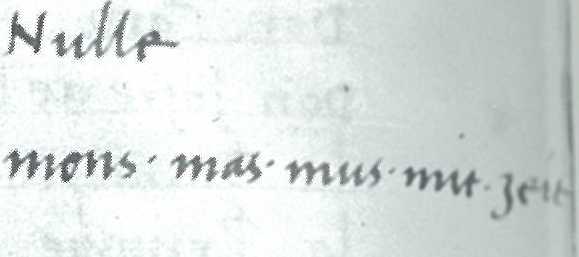 Nulla
mons · mas · mus · mit · zeit